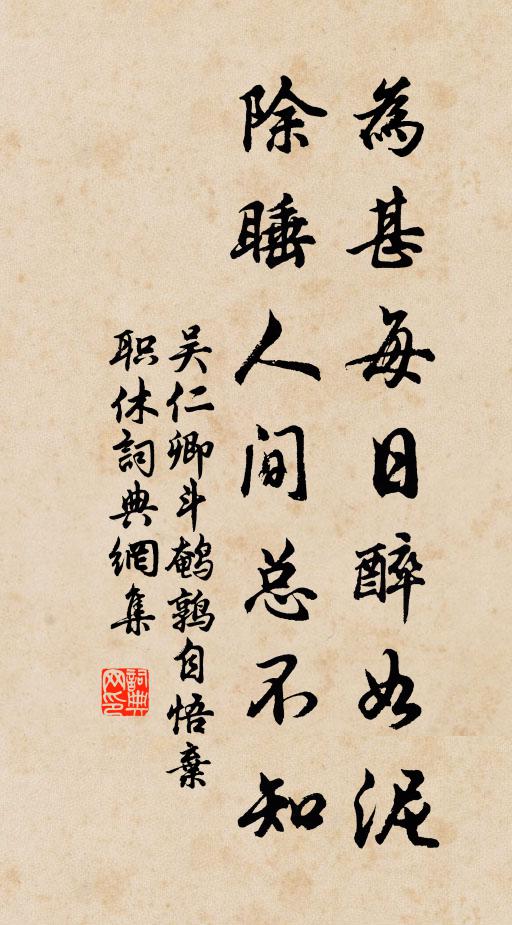 為甚每日醉如泥
除睡人间总不知
吴仁卿斗鹌鹑自悟棄
职休詞典網集
詞典
网印